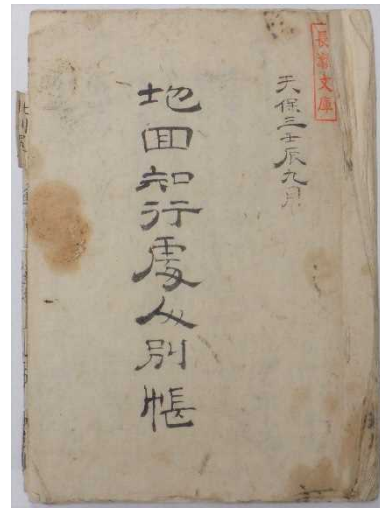 長文庫
天保三壬辰九月
地回知行處人別帳